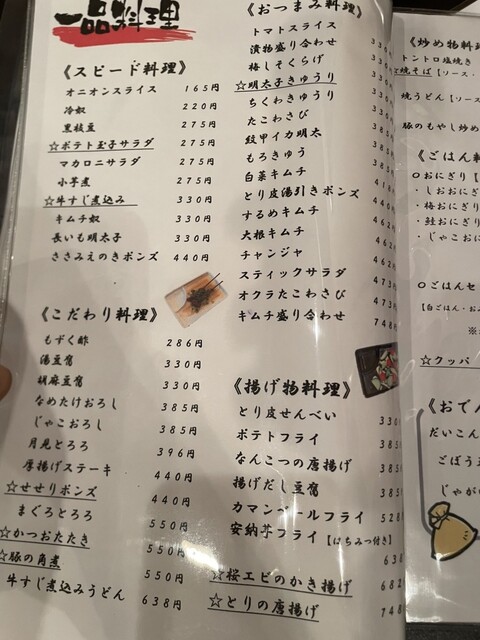 一品料理
《スピード料理》
オニオンスライス 165円
冷奴 220円
黒枝豆 275円
☆ポテト玉子サラダ 275円
マカロニサラダ 275円
小芋煮 275円
☆牛すじ煮込み 330円
キムチ奴 330円
長いも明太子 330円
ささみえのきポンズ 440円
《こだわり料理》
もずく酢 286円
湯豆腐 330円
胡麻豆腐 330円
なめたけおろし 385円
じゃこおろし 385円
月見とろろ 396円
厚揚げステーキ 440円
☆せせりポンズ 440円
まぐろとろろ 550円
☆かつおたたき 550円
☆豚の角煮 550円
牛すじ煮込みうどん 638円
《おつまみ料理》
トマトスライス
漬物盛り合わせ 330
梅しそくらげ 330
☆明太子きゅうり
ちくわきゅうり
たこわさび
紋甲イカ明太
もろきゅう
白菜キムチ
とり皮湯引きポンズ
するめキムチ
大根キムチ 462
チャンジャ 462
スティックサラダ 473
オクラたこわさび 473
キムチ盛り合わせ 748
《揚げ物料理》
とり皮せんべい 330
ポテトフライ 385
なんこつの唐揚げ 385
揚げだし豆腐 385
カマンベールフライ 528
安納芋フライ【はちみつ付き】
638
☆桜エビのかき揚げ 682
☆とりの唐揚げ 748
《炒め物料理
トントロ塩焼き
焼そば【ソース・
焼うどん【ソース
豚のもやし炒め
《ごはん料
○おにぎり【
・しおおにぎ
・梅おにぎり
・鮭おにぎり
・じゃこおに
○ごはんセ
【白ごはん・お
※
☆クッパ
《おでん
だいこん
ごぼう
じゃが